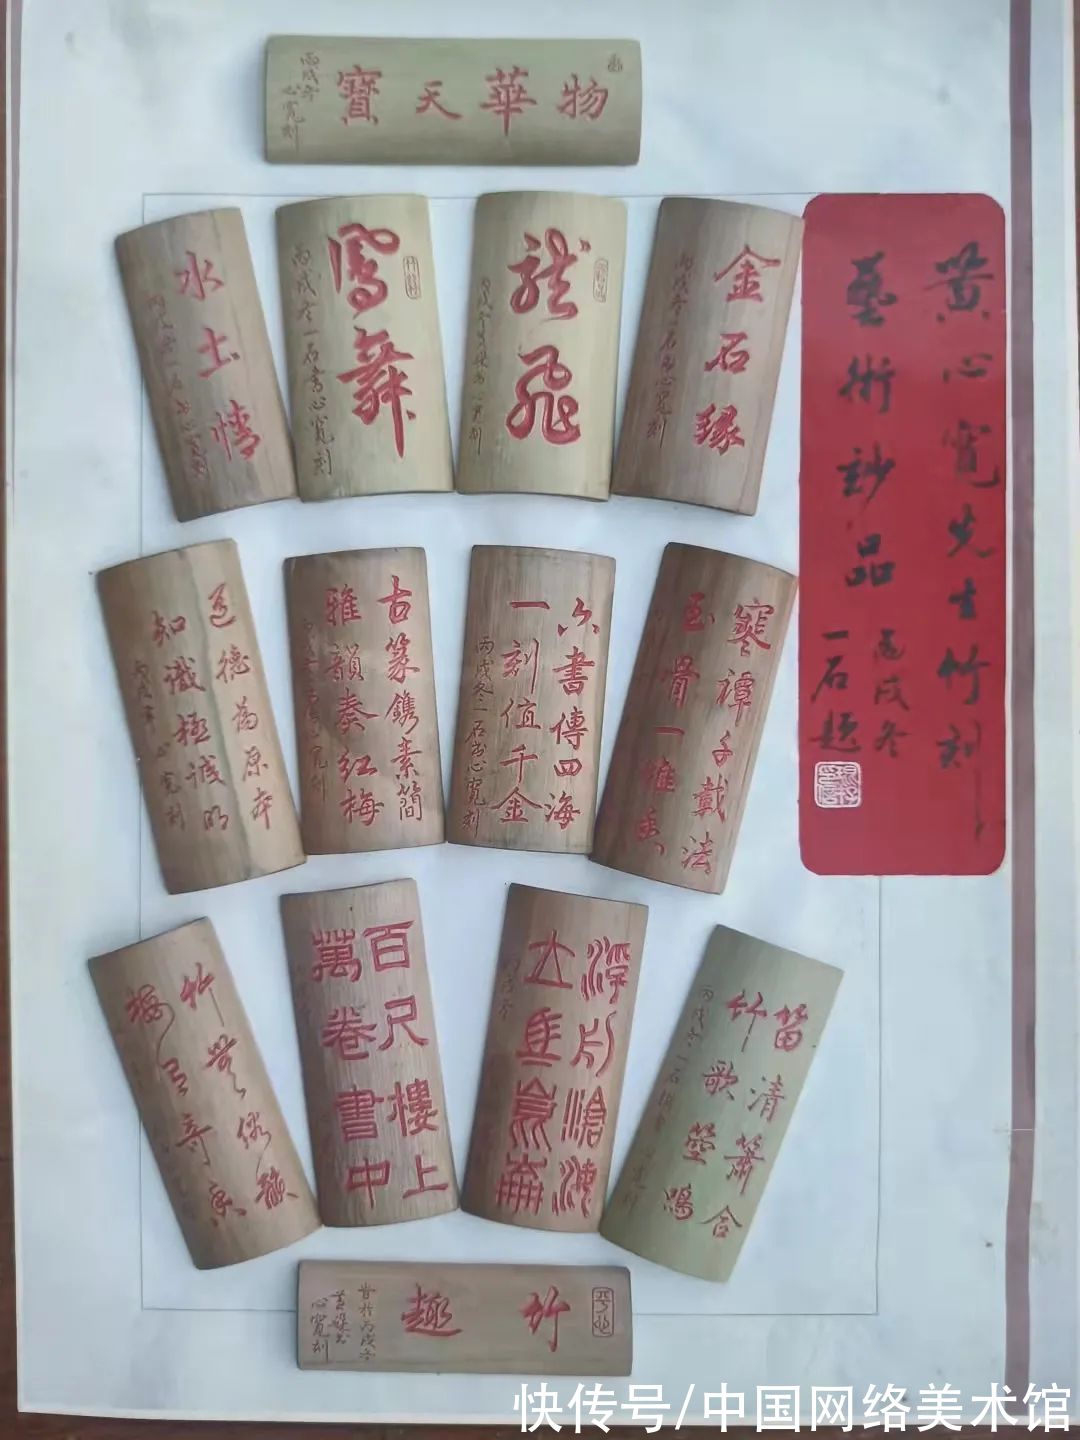 物華天寶
丙戌冬
心寬刻
黄心寬先生竹刻
藝術妙品
丙戌冬
一石題
金石缘
丙戌冬一石書心寬刻
龍飛
鳳舞
丙戌冬一石書心寬刻
水土情
丙戌冬一石書心寬刻
寒譚子戴法
玉骨一堆
六書傳四海
一刻值千金
丙戌冬一石書心寬刻
古篆鐫素簡
雅韻奏紅梅
道德為原本
知識極誠明
丙戌冬心寬刻
笛清簫合
竹歌壑鳴
浮片滄海
立馬崑崙
丙戌冬
百尺樓上
萬卷書中
竹無俗韻
梅有奇香
竹趣
時於丙戌冬
心寬刻
快传号/中国网络美术馆